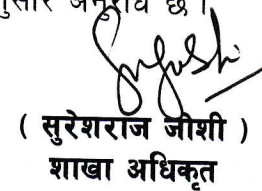 अनुरोध छ।
( सुरेशराज जोशी )
शाखा अधिकृत